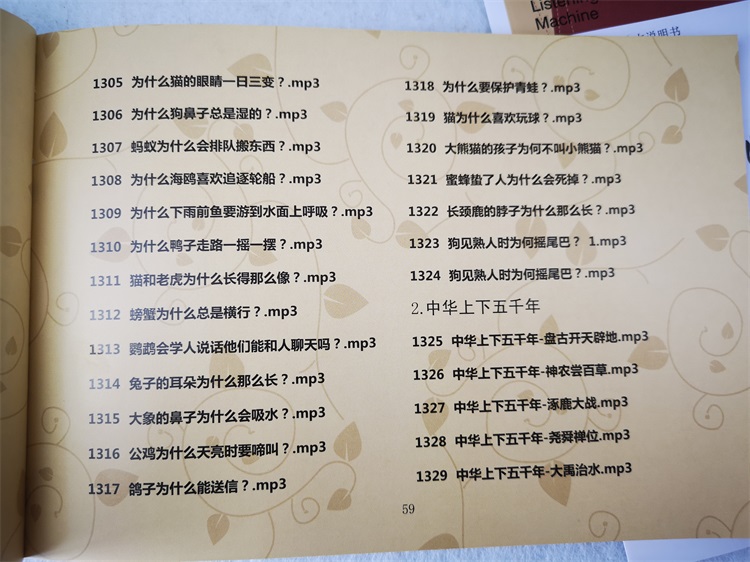 Listening
Machine
说明书
1305 为什么猫的眼睛一日三变？.mp3
1306 为什么狗鼻子总是湿的？.mp3
1307 蚂蚁为什么会排队搬东西？.mp3
1308 为什么海鸥喜欢追逐轮船？.mp3
1309 为什么下雨前鱼要游到水面上呼吸？.mp3
1310 为什么鸭子走路一摇一摆？.mp3
1311 猫和老虎为什么长得那么像？.mp3
1312 螃蟹为什么总是横行？.mp3
1313 鹦鹉会学人说话他们能和人聊天吗？.mp3
1314 兔子的耳朵为什么那么长？.mp3
1315 大象的鼻子为什么会吸水？.mp3
1316 公鸡为什么天亮时要啼叫？.mp3
1317 鸽子为什么能送信？.mp3
1318 为什么要保护青蛙？.mp3
1319 猫为什么喜欢玩球？.mp3
1320 大熊猫的孩子为何不叫小熊猫？.mp3
1321 蜜蜂蛰了人为什么会死掉？.mp3
1322 长颈鹿的脖子为什么那么长？.mp3
1323 狗见熟人时为何摇尾巴？ 1.mp3
1324 狗见熟人时为何摇尾巴？.mp3
2.中华上下五千年
1325 中华上下五千年-盘古开天辟地.mp3
1326 中华上下五千年-神农尝百草.mp3
1327 中华上下五千年-涿鹿大战.mp3
1328 中华上下五千年-尧舜禅位.mp3
1329 中华上下五千年-大禹治水.mp3
59